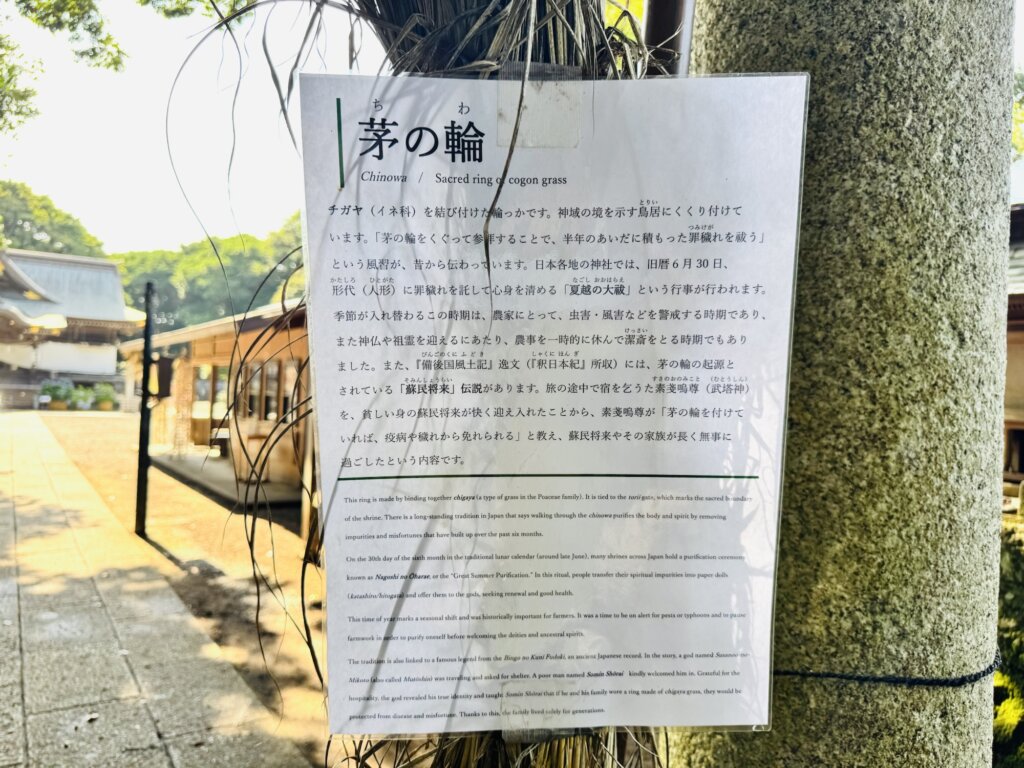 ち わ
茅の輪
Chinowa / Sacred ring of cogon grass
チガヤ（イネ科）を結び付けた輪っかです。神域の境を示す鳥居にくくり付けて
います。「茅の輪をくぐって参拝することで、半年のあいだに積もった罪穢れを祓う」
という風習が、昔から伝わっています。日本各地の神社では、旧暦6月30日、
形代（人形）に罪穢れを託して心身を清める「夏越の大祓」という行事が行われます。
季節が入れ替わるこの時期は、農家にとって、虫害・風害などを警戒する時期であり、
また神仏や祖霊を迎えるにあたり、農事を一時的に休んで潔斎をとる時期でもあり
ました。また、『備後国風土記』逸文（『釈日本紀』所収）には、茅の輪の起源と
されている「蘇民将来」伝説があります。旅の途中で宿を乞うた素戔嗚尊（武塔神）
を、貧しい身の蘇民将来が快く迎え入れたことから、素戔嗚尊が「茅の輪を付けて
いれば、疫病や穢れから免れられる」と教え、蘇民将来やその家族が長く無事に
過ごしたという内容です。
This ring is made by binding together chigaya (a type of grass in the Poaceae family). It is tied to the torii gate, which marks the sacred boundary
of the shrine. There is a long-standing tradition in Japan that says walking through the chinowa purifies the body and spirit by removing
impurities and misfortunes that have built up over the past six months.
On the 30th day of the sixth month in the traditional lunar calendar (around late June), many shrines across Japan hold a purification ceremony
known as Nagoshi no Oharae, or the "Great Summer Purification." In this ritual, people transfer their spiritual impurities into paper dolls
(katashiro/hitogata) and offer them to the gods, seeking renewal and good health.
This time of year marks a seasonal shift and was historically important for farmers. It was a time to be on alert for pests or typhoons and to pause
farmwork in order to purify oneself before welcoming the deities and ancestral spirits.
The tradition is also linked to a famous legend from the Bingo no Kuni Fudoki, an ancient Japanese record. In the story, a god named Susanoo-no-
Mikoto (also called Mutōshin) was traveling and asked for shelter. A poor man named Somin Shōrai kindly welcomed him in. Grateful for the
hospitality, the god revealed his true identity and taught Somin Shōrai that if he and his family wore a ring made of chigaya grass, they would be
protected from disease and misfortune. Thanks to this, the family lived safely for generations.